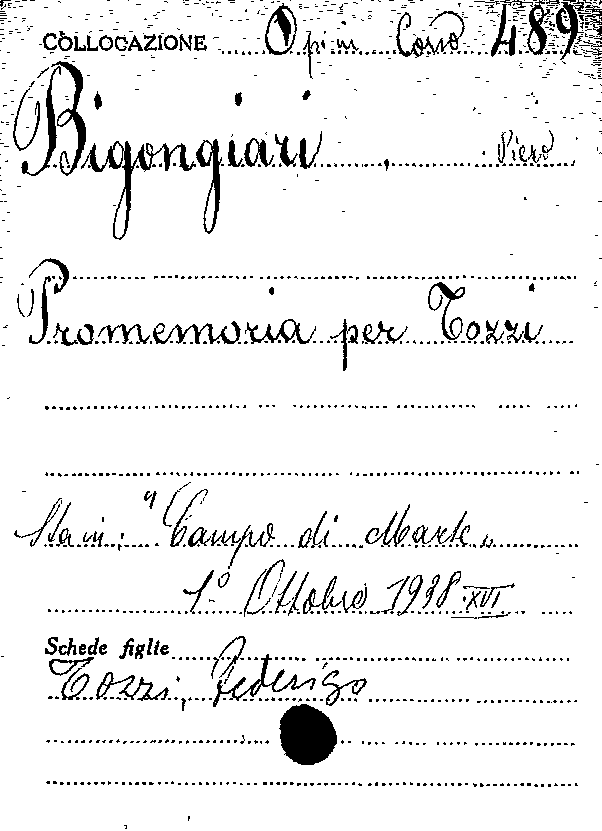 COLLOCAZIONE Op. in Corso 489
Bigongiari, Piero
Promemoria per Tozzi
Sta in: "Campo di Marte„
1º Ottobre 1938·XVI
Schede figlie
Tozzi, Federigo